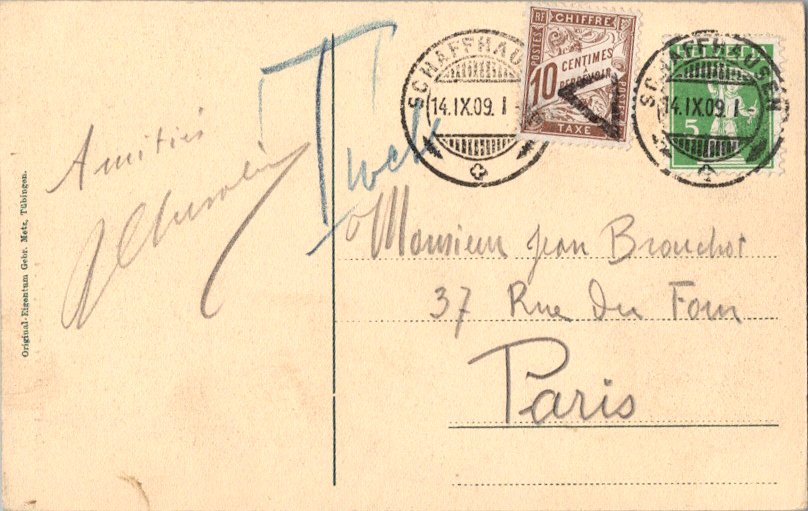 Amitiés
T
SCHAFFHAUSEN
14.IX.09.1
RF
CHIFFRE
POSTES
10 CENTIMES
A PERCEVOIR
TAXE
T
SCHAFFHAUSEN
14.IX.09.1
5
Monsieur Jean Brouchot
37 Rue du Four
Paris
Original-Eigentum Gebr. Metz, Tübingen.